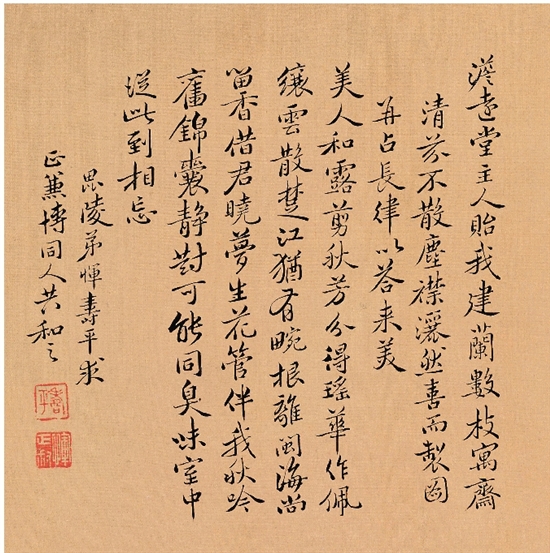 澹遠堂主人貽我建蘭數枝寓齋
清芬不散塵襟灑然喜而製圖
并占長律以答來美
美人和露剪秋芳分得瑤華作佩
纕雲散楚江猶有畹根離閩海尚
留香借君曉夢生花管伴我秋吟
舊錦囊静對可能同臭味室中
從此到相忘
毘陵弟惲壽平求
正蒹摶同人共和之
壽平
惲正叔